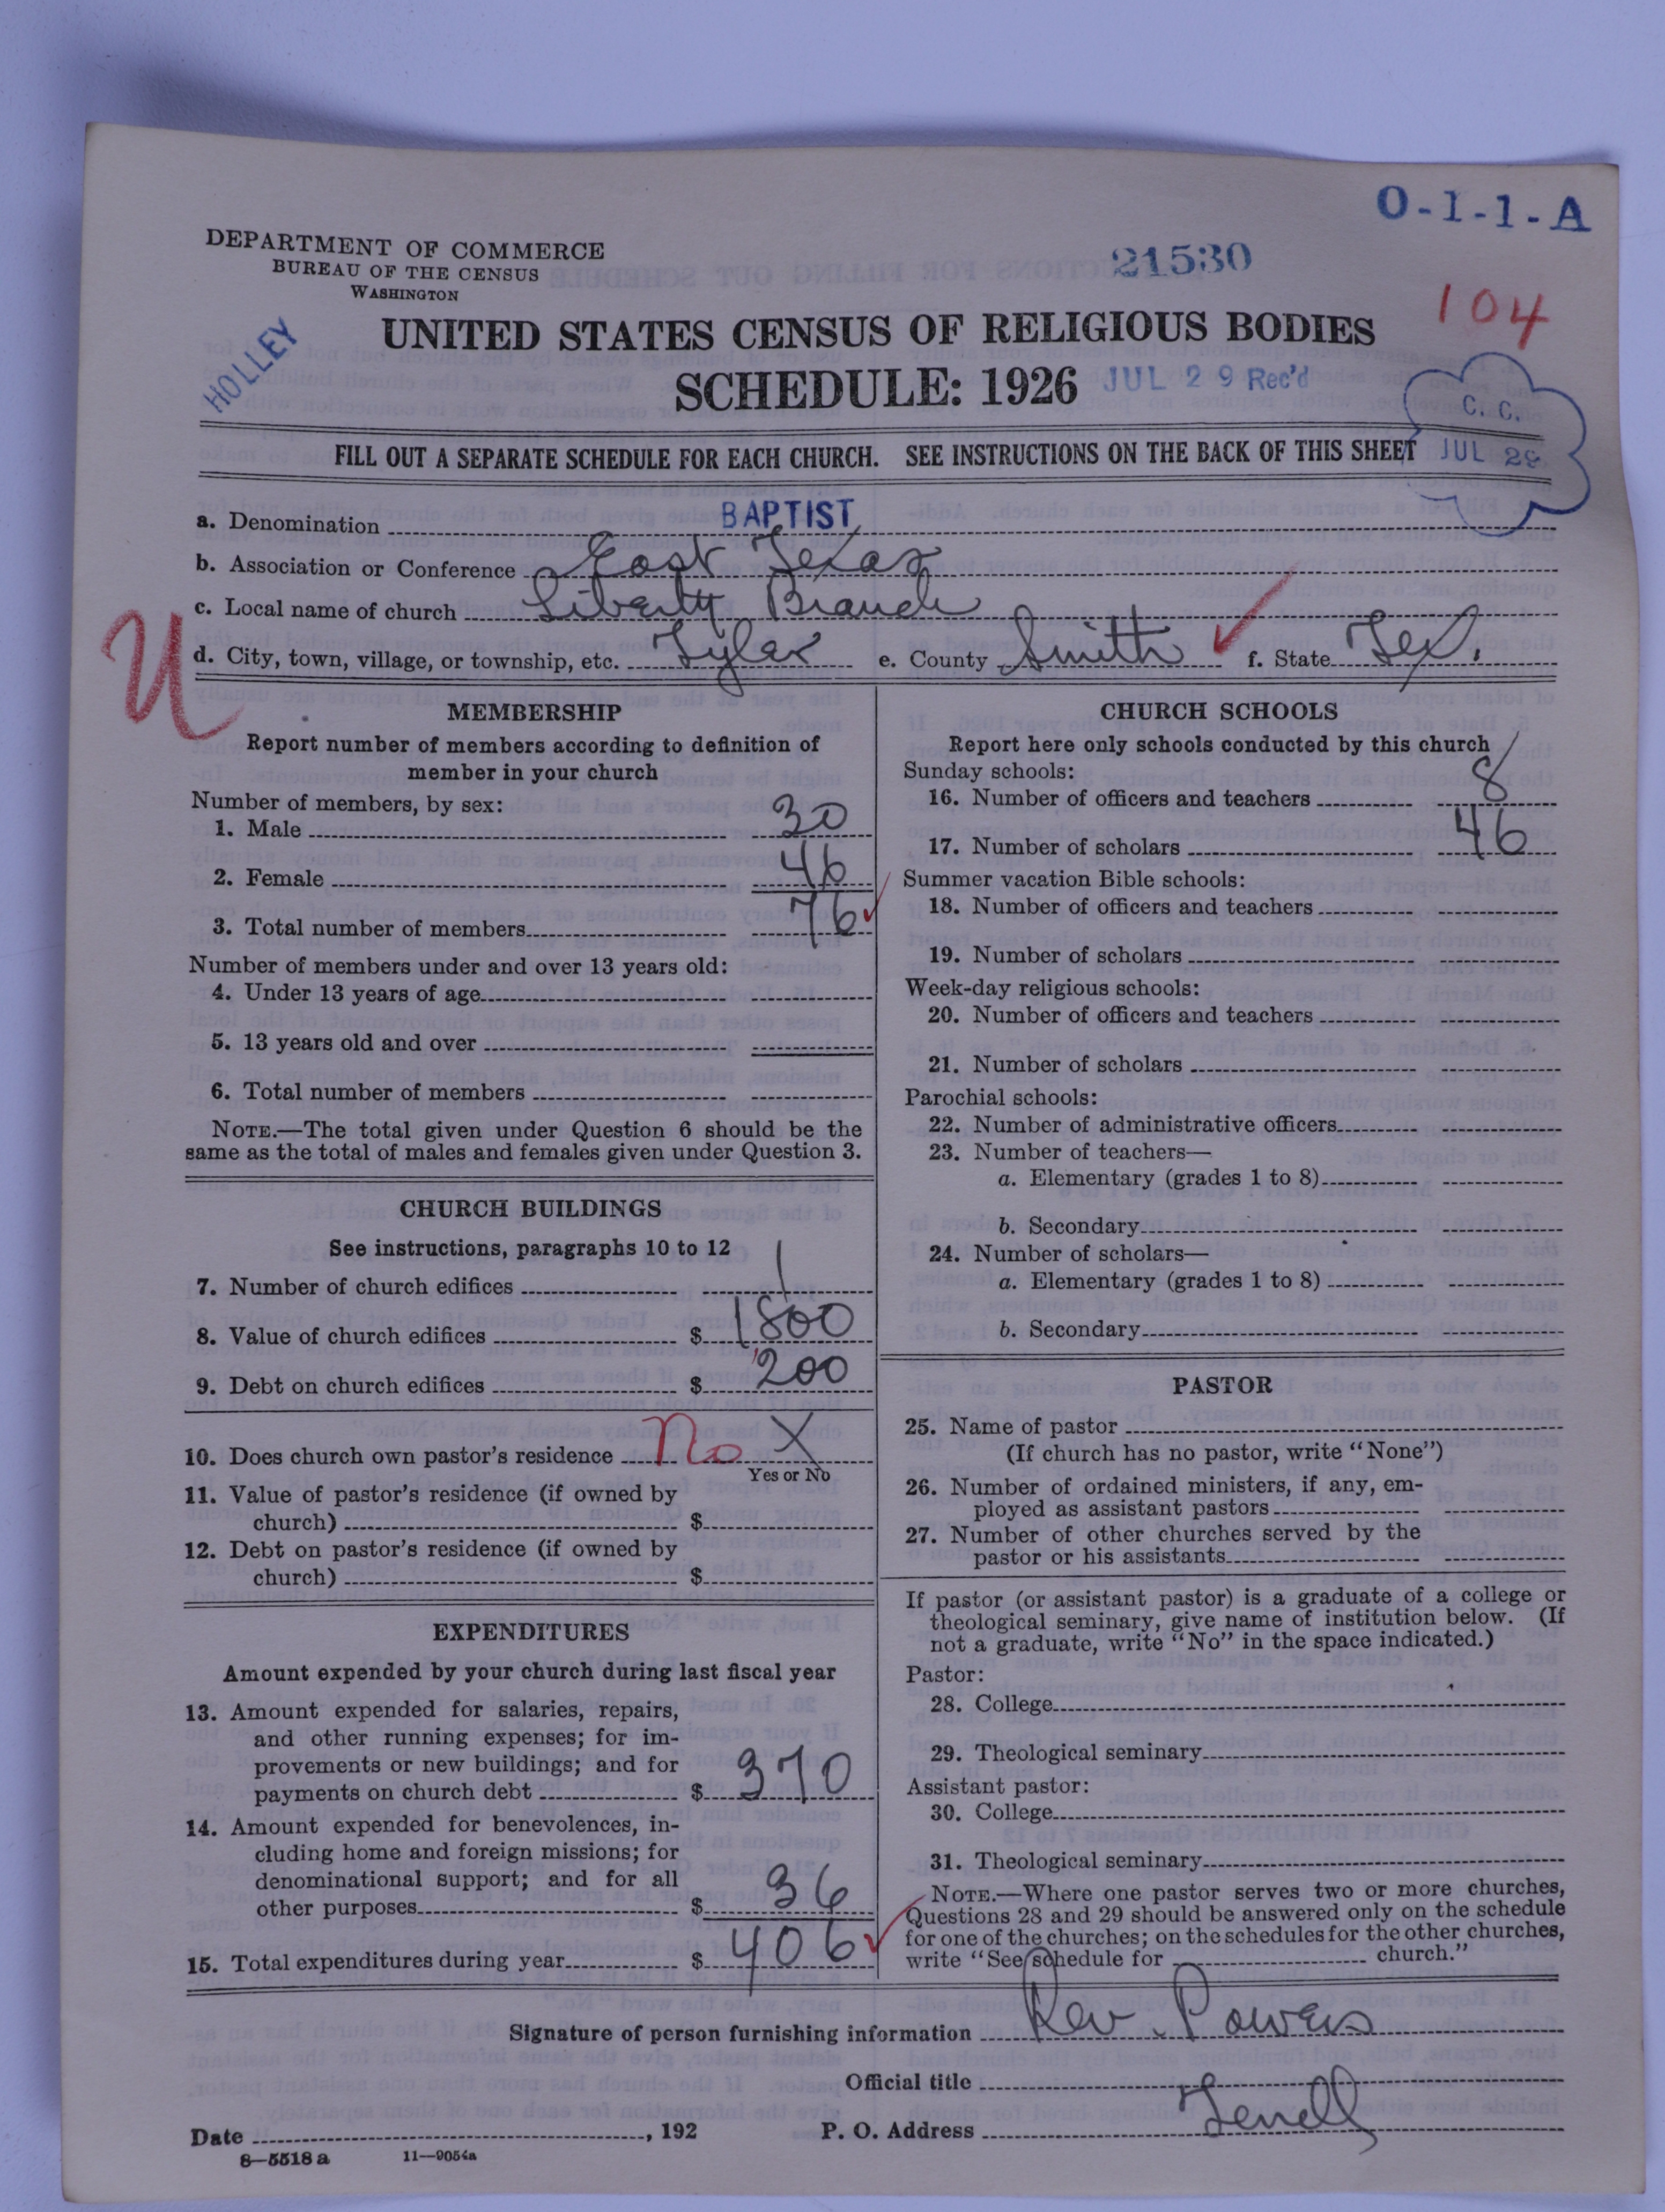 O-1-1-A
DEPARTMENT OF COMMERCE
BUREAU OF THE CENSUS
WASHINGTON
21530
104
HOLLEY
UNITED STATES CENSUS OF RELIGIOUS BODIES
SCHEDULE: 1926
JUL 29 Rec'd
C. C.
JUL 29
FILL OUT A SEPARATE SCHEDULE FOR EACH CHURCH. SEE INSTRUCTIONS ON THE BACK OF THIS SHEET
a. Denomination BAPTIST
b. Association or Conference East Texas
c. Local name of church Liberty Branch
U
d. City, town, village, or township, etc. Tyler e. County Smith f. State Tex.
MEMBERSHIP
Report number of members according to definition of
member in your church
Number of members, by sex:
1. Male 30
2. Female 46
3. Total number of members 76
Number of members under and over 13 years old:
4. Under 13 years of age
5. 13 years old and over
6. Total number of members
NOTE.—The total given under Question 6 should be the
same as the total of males and females given under Question 3.
CHURCH BUILDINGS
See instructions, paragraphs 10 to 12
7. Number of church edifices 1
8. Value of church edifices $ 1800
9. Debt on church edifices $ 200
10. Does church own pastor's residence No X
Yes or No
11. Value of pastor's residence (if owned by
church) $
12. Debt on pastor's residence (if owned by
church) $
EXPENDITURES
Amount expended by your church during last fiscal year
13. Amount expended for salaries, repairs,
and other running expenses; for im-
provements or new buildings; and for
payments on church debt $ 370
14. Amount expended for benevolences, in-
cluding home and foreign missions; for
denominational support; and for all
other purposes $ 36
15. Total expenditures during year $ 406
CHURCH SCHOOLS
Report here only schools conducted by this church
Sunday schools:
16. Number of officers and teachers 8
17. Number of scholars 46
Summer vacation Bible schools:
18. Number of officers and teachers
19. Number of scholars
Week-day religious schools:
20. Number of officers and teachers
21. Number of scholars
Parochial schools:
22. Number of administrative officers
23. Number of teachers—
a. Elementary (grades 1 to 8)
b. Secondary
24. Number of scholars—
a. Elementary (grades 1 to 8)
b. Secondary
PASTOR
25. Name of pastor
(If church has no pastor, write "None")
26. Number of ordained ministers, if any, em-
ployed as assistant pastors
27. Number of other churches served by the
pastor or his assistants
If pastor (or assistant pastor) is a graduate of a college or
theological seminary, give name of institution below. (If
not a graduate, write "No" in the space indicated.)
Pastor:
28. College
29. Theological seminary
Assistant pastor:
30. College
31. Theological seminary
NOTE.—Where one pastor serves two or more churches,
Questions 28 and 29 should be answered only on the schedule
for one of the churches; on the schedules for the other churches,
write "See schedule for church."
Signature of person furnishing information Rev. Powers
Official title
Date , 192 P. O. Address Terrell
8—5518 a 11—9054a